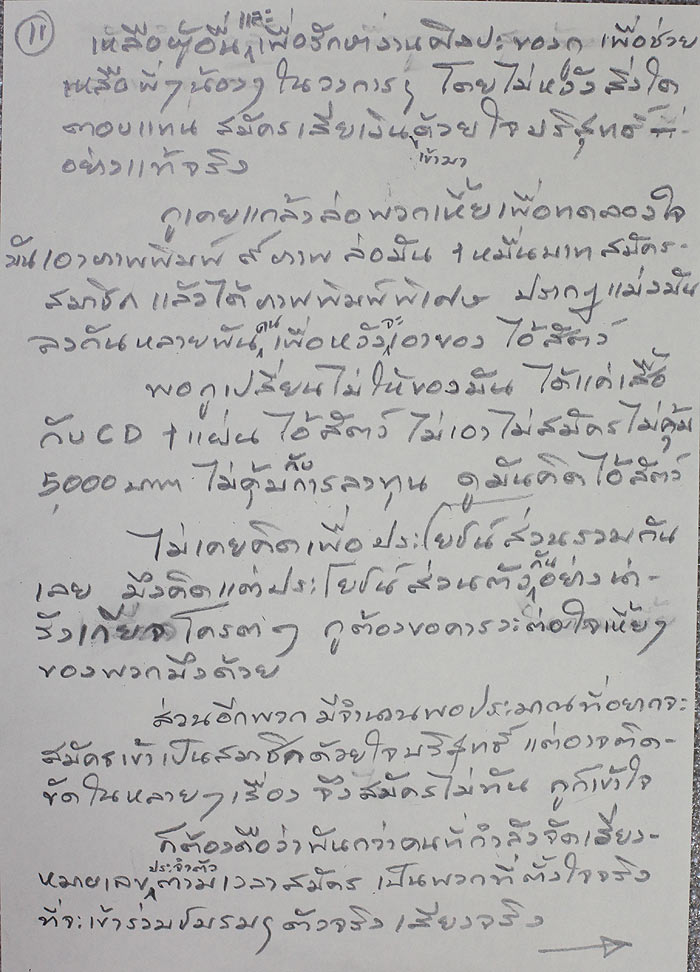 11
เหลือผู้อื่น และ เพื่อรักษางานศิลปะของกู เพื่อช่วย
เหลือพี่ๆน้องๆ ในวงการฯ โดยไม่หวังสิ่งใด
ตอบแทน สมัครเสียเงินเข้ามาด้วยใจบริสุทธิ์
อย่างแท้จริง
กูเคยแกล้งล่อพวกเหี้ยเพื่อทดลองใจ
มันเอาภาพพิมพ์ ๙ ภาพ ล่อมัน 1 หมื่นบาท สมัคร-
สมาชิก แล้วได้ภาพพิมพ์พิเศษ ปรากฏแม่งมัน
ลงกันหลายพันคน เพื่อหวังจะเอาของ ไอ้สัตว์
พอกูเปลี่ยนไม่ให้ของมัน ได้แค่เสื้อ
กับ CD 1 แผ่น ไอ้สัตว์ ไม่เอาไม่สมัครไม่คุ้ม
5,000 บาท ไม่คุ้มกับการลงทุน ดูมันคิดไอ้สัตว์
ไม่เคยคิดเพื่อประโยชน์ส่วนรวมกัน
เลย มึงคิดแต่ประโยชน์ส่วนตัวกันอย่างน่า-
รังเกียจโครตๆ กูต้องขอคารวะต่อใจเหี้ยๆ
ของพวกมึงด้วย
ส่วนอีกพวก มีจำนวนพอประมาณที่อยากจะ
สมัครเข้าเป็นสมาชิกด้วยใจบริสุทธิ์ แต่อาจติด-
ขัดในหลายๆเรื่อง จึงสมัครไม่ทัน กูก็เข้าใจ
ก็ต้องถือว่าพันกว่าคนที่กำลังจัดเรียง-
หมายเลขประจำตัวตามเวลาสมัคร เป็นพวกที่ตั้งใจจริง
ที่จะเข้าร่วมชมรมฯ ตัวจริง เสียงจริง